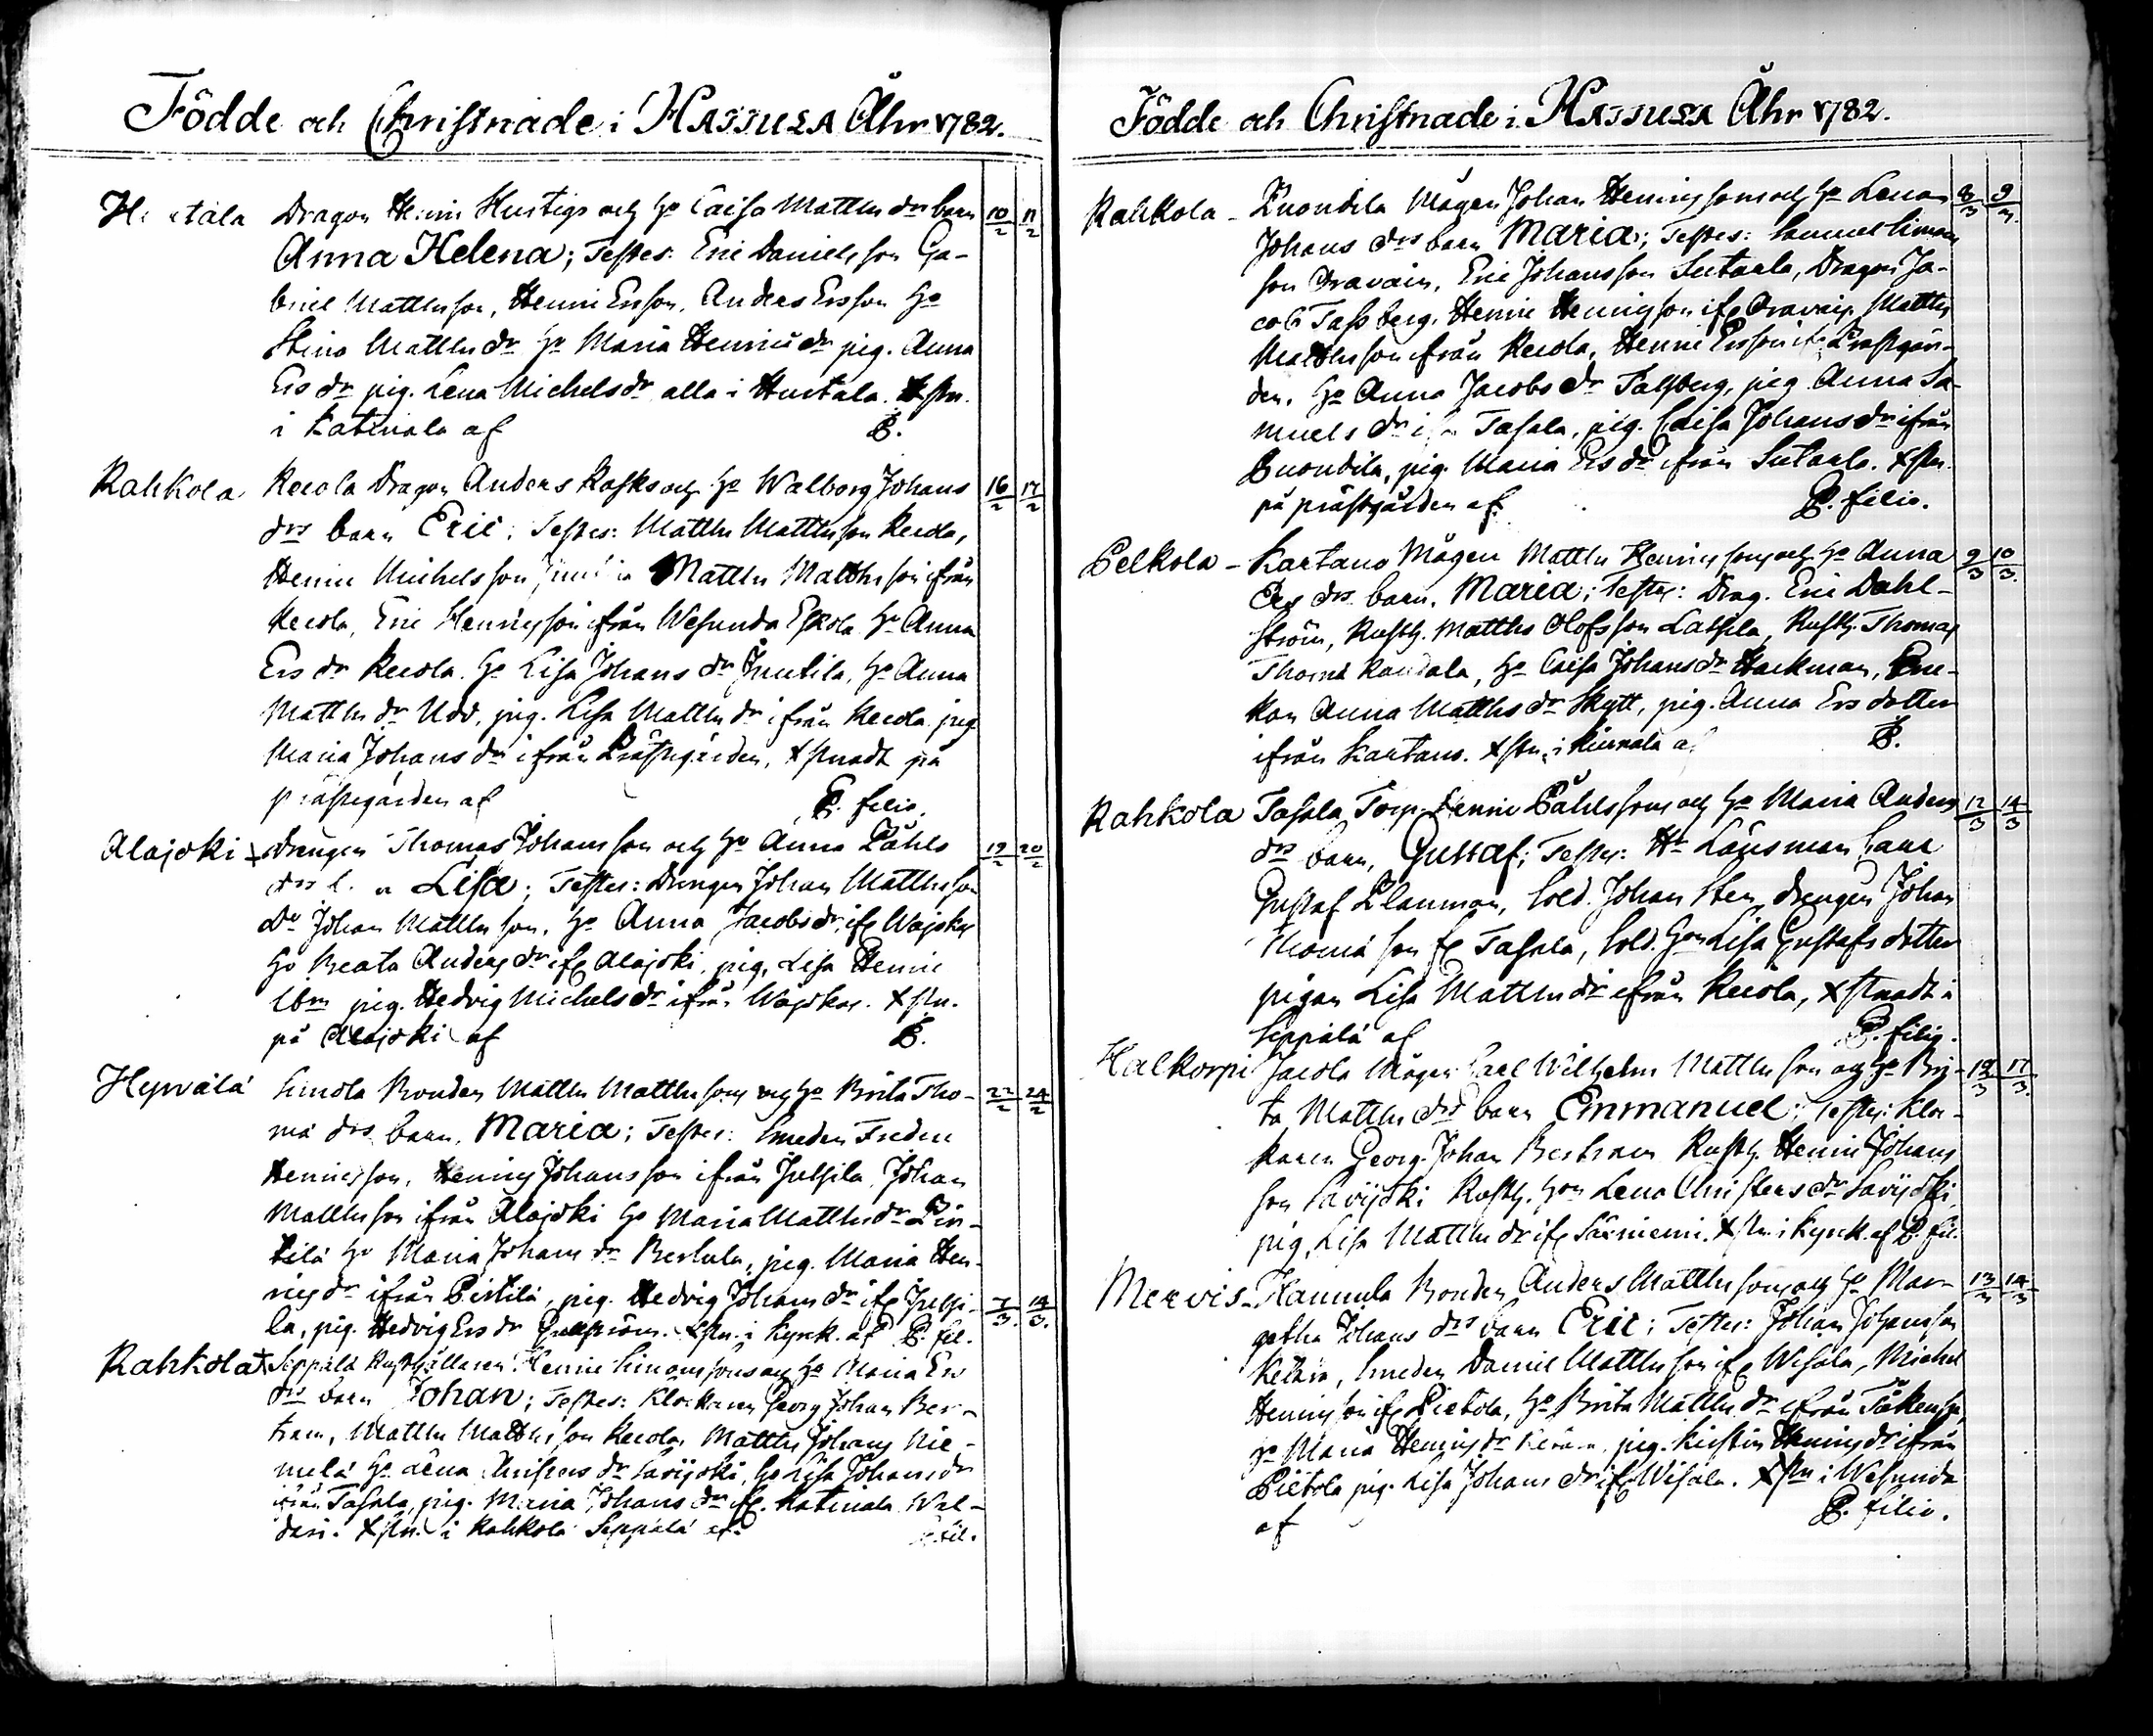 Födde och Christnade i HAttULA Åhr 1782.
Dragon Henric Hustigs och Ho Caisa Matths drs barn 10/2 11/2
Anna Helena; Testes: Eric Danielsson Ga-
briel Matthsson, Henric Ersson, Anders Ersson Ho
Stina Matths dr Ho Maria Henrics dr pig. Anna
Ers dr pig. Lena Michels dr alla i Hurtala. Xstn.
i Katinala af P.
Rahkola Recola Dragon Anders Rasks och Ho Walborg Johans 16/2 17/2
drs barn Eric; Testes: Matths Matthsson Recola,
Henric Michelsson Matths Matthsson ifrån
Recola, Eric Henricsson ifrån Wesunda Eskola Ho Anna
Ers dr Recola. Ho Lisa Johans dr Juutila, Ho Anna
Matths dr Udd, pig. Lisa Matths dr ifrån Recola pig
Maria Johans dr ifrån Prästegården, Xstnadt på
prästegården af P. filio.
Alajoki + drengen Thomas Johansson och Ho Anna Påhls 19/2 20/2
drs Lisa; Testes: Drengen Johan Matthsson
Do Johan Matthsson, Ho Anna Jacobs dr, ifr Wajoki
Ho Beata Anders dr ifr Alajoki, pig. Lisa Henric
pig. Hedvig Michels dr ifrån Xstn.
på Alajoki af P.
Hyrvälä Simola Bonden Matths Matthssons och Ho Brita Tho- 22/2 24/2
mæ drs barn, Maria; Testes: Smeden Fredric
Henricsson, Henric Johansson ifrån Jutsila, Johan
Matthsson ifrån Alajoki Ho Maria Matths dr Pir-
tilä Ho Maria Johans dr Bertula, pig. Maria Hen-
rics dr ifrån Pirtilä, pig. Hedvig Johans dr ifr Jutsi- 7/3 14/3
la, pig. Hedvig Ers dr Xstn. i Kyrck. af P. fil.
Rahkola + Seppälä Rusthållaren Henric Simonssons och Ho Maria Ers
drs barn Johan; Testes: Klockaren Georg Johan Ber-
tram, Matths Matthsson Recola, Matths Johans Nie-
melä Ho Lena Christers dr Savijoki, Ho Lisa Johans dr
ifrån Tasala, pig. Maria Johans dr ifr. Katinala Wal-
dari. Xstn. i Rahkola Seppälä af. P. fil.
Födde och Christnade i HAttULA Åhr 1782.
Rahkola - Puondila Mågen Johan Henricssons och Ho Lenas 8/3 9/3
Johans drs barn Maria; Testes: Samuel Simons
son Oravain, Eric Johansson Sutarla, Dragon Ja-
cob Tassberg, Henric Henricsson ifr Oravain, Matths
Matthsson ifrån Recola, Henric Ersson ifr Prästgår-
den, Ho Anna Jacobs dr Tassberg, pig. Anna Sa-
muels dr Tasala, pig. Caisa Johans dr ifrån
Puondila, pig. Maria Ers dr ifrån Sutarla. Xstn.
på prästgården af P. filio.
Pelkola - Kartano Mågen Matths Henricssons och Ho Anna 9/3 10/3
Ers drs barn, Maria; Testes: Drag. Eric Dahl-
ström, Rusth. Matths Olofsson Lassila, Rusth. Thomas
Thomæ Ho Caisa Johans dr Hackman, Enc-
kan Anna Matths dr Skytt, pig. Anna Ers dotter
ifrån Kartano. Xstn. i af P.
Rahkola Tasala Torp. Henric Påhlssons och Ho Maria Anders 12/3 14/3
drs barn, Gustaf; Testes: Hr Länsman Carl
Gustaf Planman, Sold. Johan Sten, drengen Johan
Thomæ son fr Tasala, Sold. Hon Lisa Gustafs dotter
pigan Lisa Matths dr ifrån Recola, Xstnadt i
Seppälä af P. filio.
Halkorpi Jacola Mågen Carl Wilhelm Matthsson och Ho Bri- 12/3 17/3
ta Matths drs barn Emmanuel; Testes: Kloc-
karen Georg Johan Bertram Rusth. Henric Johans
son Savijoki Rusth. Hon Lena Christers dr Savijoki,
pig. Lisa Matths dr ifr Särniemi. Xstn. i Kyrck. af P. fil.
Mervis- Hannula Bonden Anders Matthssons och Ho Mar- 13/3 14/3
getha Johans drs barn Eric; Testes: Johan Johansson
Smeden Daniel Matthsson ifr Wesala, Michel
Henricsson ifr Pietola, Ho Brita Matths dr ifrån
Ho Maria Henrics dr pig. Kirstin Henrics dr ifrån
Pietola pig. Lisa Johans dr ifr Wesala. Xstn i Wesunda
af P. filio.